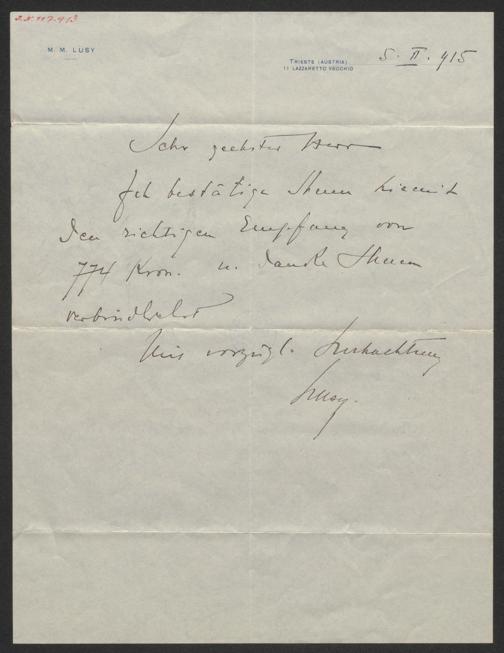 M. M. LUSY
TRIESTE (AUSTRIA)
11 LAZZARETTO VECCHIO
5. II. 915
Sehr geehrter Herr
Ich bestätige Ihnen hiemit
den richtigen Empfang von
774 Kron. u. danke Ihnen
verbindlichst
Mit vorzügl. Hochachtung
Lusy.